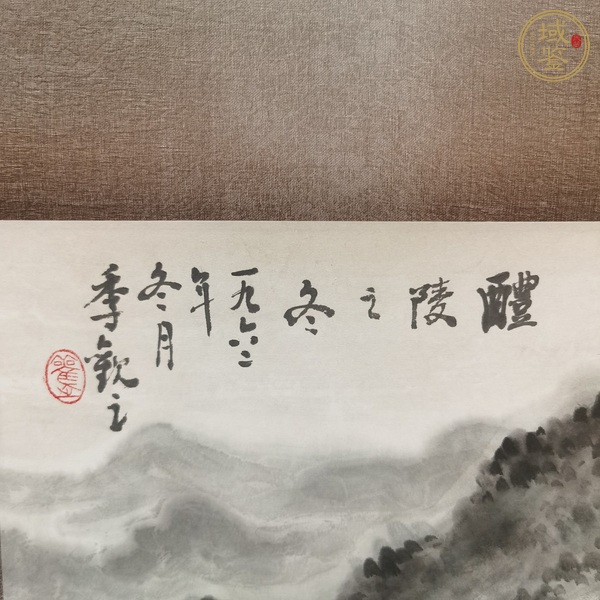 醴陵之冬
一九六二
年
冬月
季觀之
域鉴